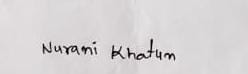 Nurani Khatun